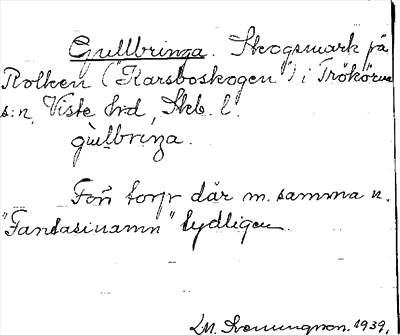 Gullbringa. Skogsmark på
Rolken ("Karsboskogen") i Trökörna
s:n, Viste hrd, Skb. l.
gùlbrıŋa.
Förr torp där m. samma n.
"Fantasinamn" tydligen.
1939.